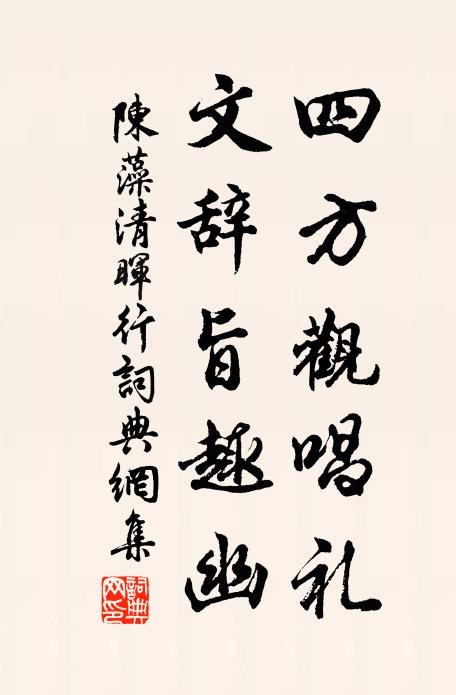 四方觀唱礼
文辞旨趣幽
陳藻清暉行詞典網集
詞典网印